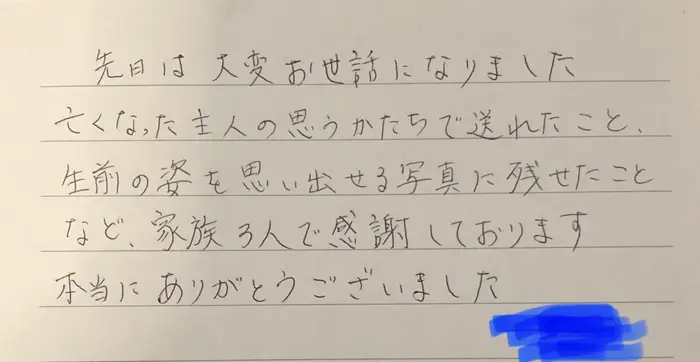 先日は大変お世話になりました
亡くなった主人の思うかたちで送れたこと、
生前の姿を思い出せる写真に残せたこと
など、家族3人で感謝しております
本当にありがとうございました